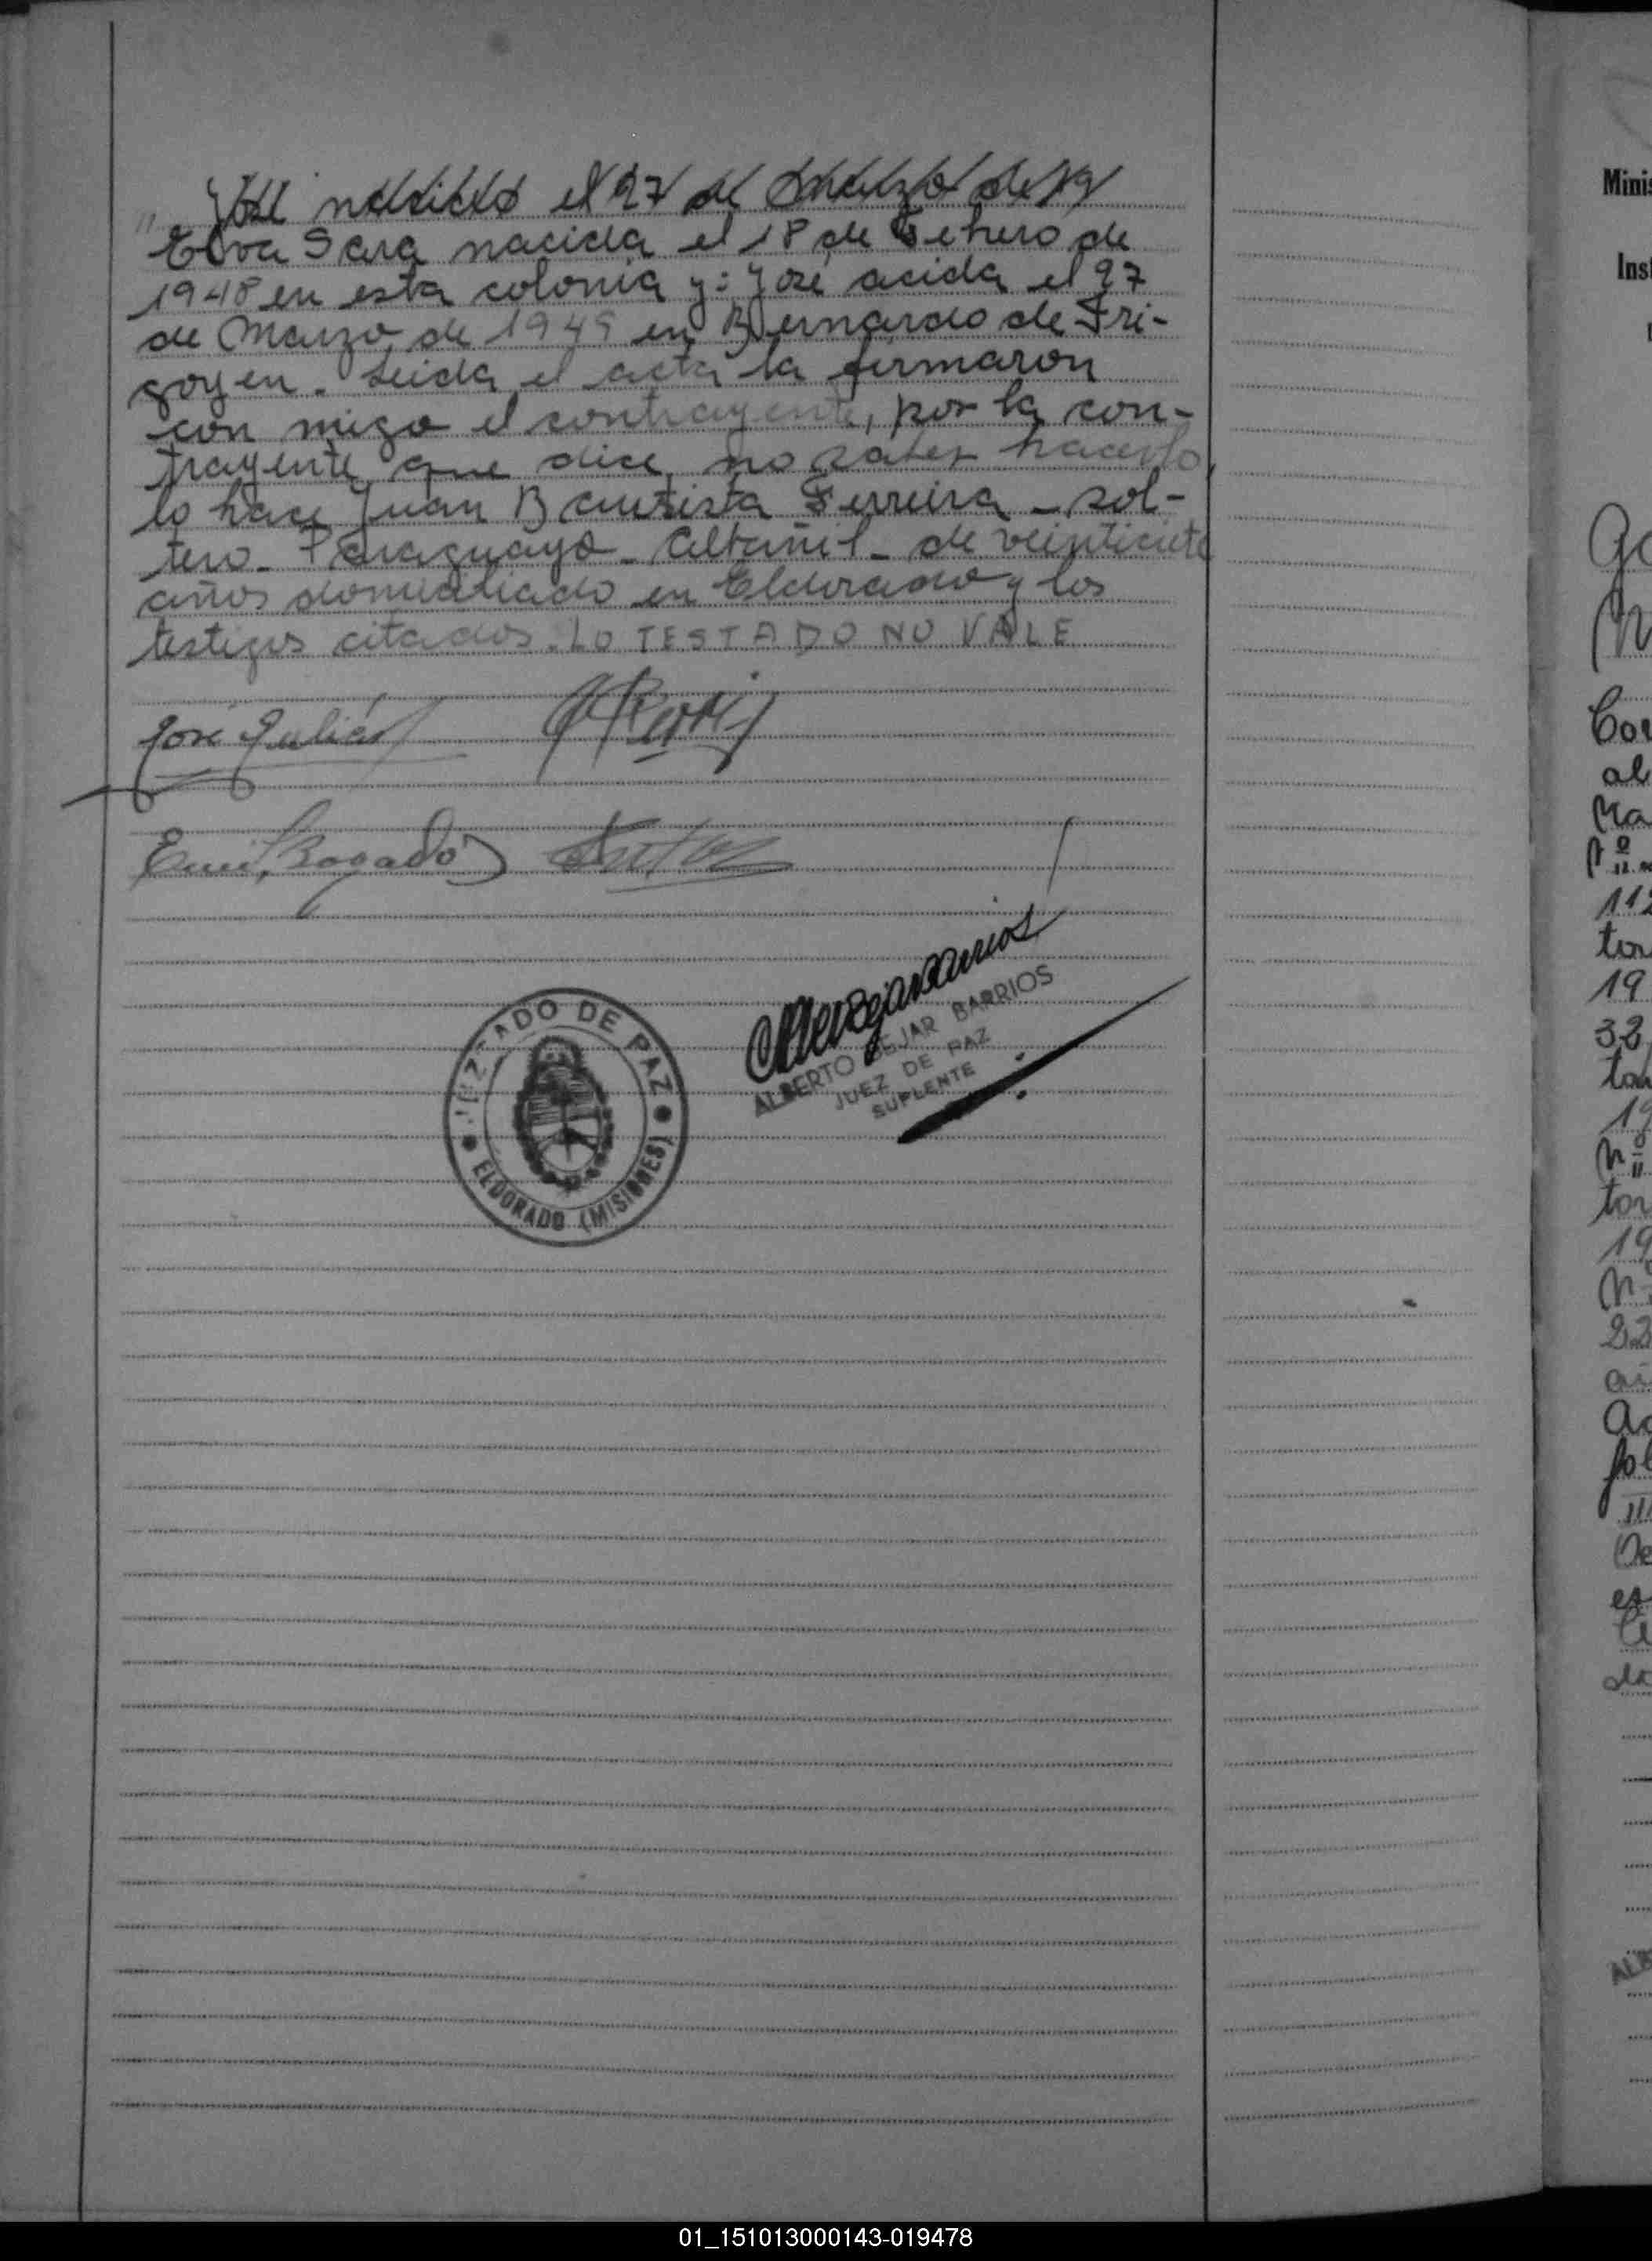 José nacido el 27 de Marzo de 19
Elva Sara nacida el 18 de Febrero de
1948 en esta colonia y: José acida el 27
de Marzo de 1949 en Bernardo de Iri-
goyen. Leida el acta la firmaron
con migo el contrayente, por la con-
trayente que dice no saber hacerlo,
lo hace Juan Bautista Ferreira - sol-
tero - Paraguayo - albañil - de veintisiete
años domiciliado en Eldorado y los
testigos citados. LO TESTADO NO VALE
José Julián
Bogado
JUZGADO DE PAZ
ELDORADO (MISIONES)
ALBERTO BEJAR BARRIOS
JUEZ DE PAZ
SUPLENTE
Minis
Inst
Cor
al
Na
112
tor
19
32
to
19
tor
19
22
Ac
fol
De
es
ALB
01_151013000143-019478